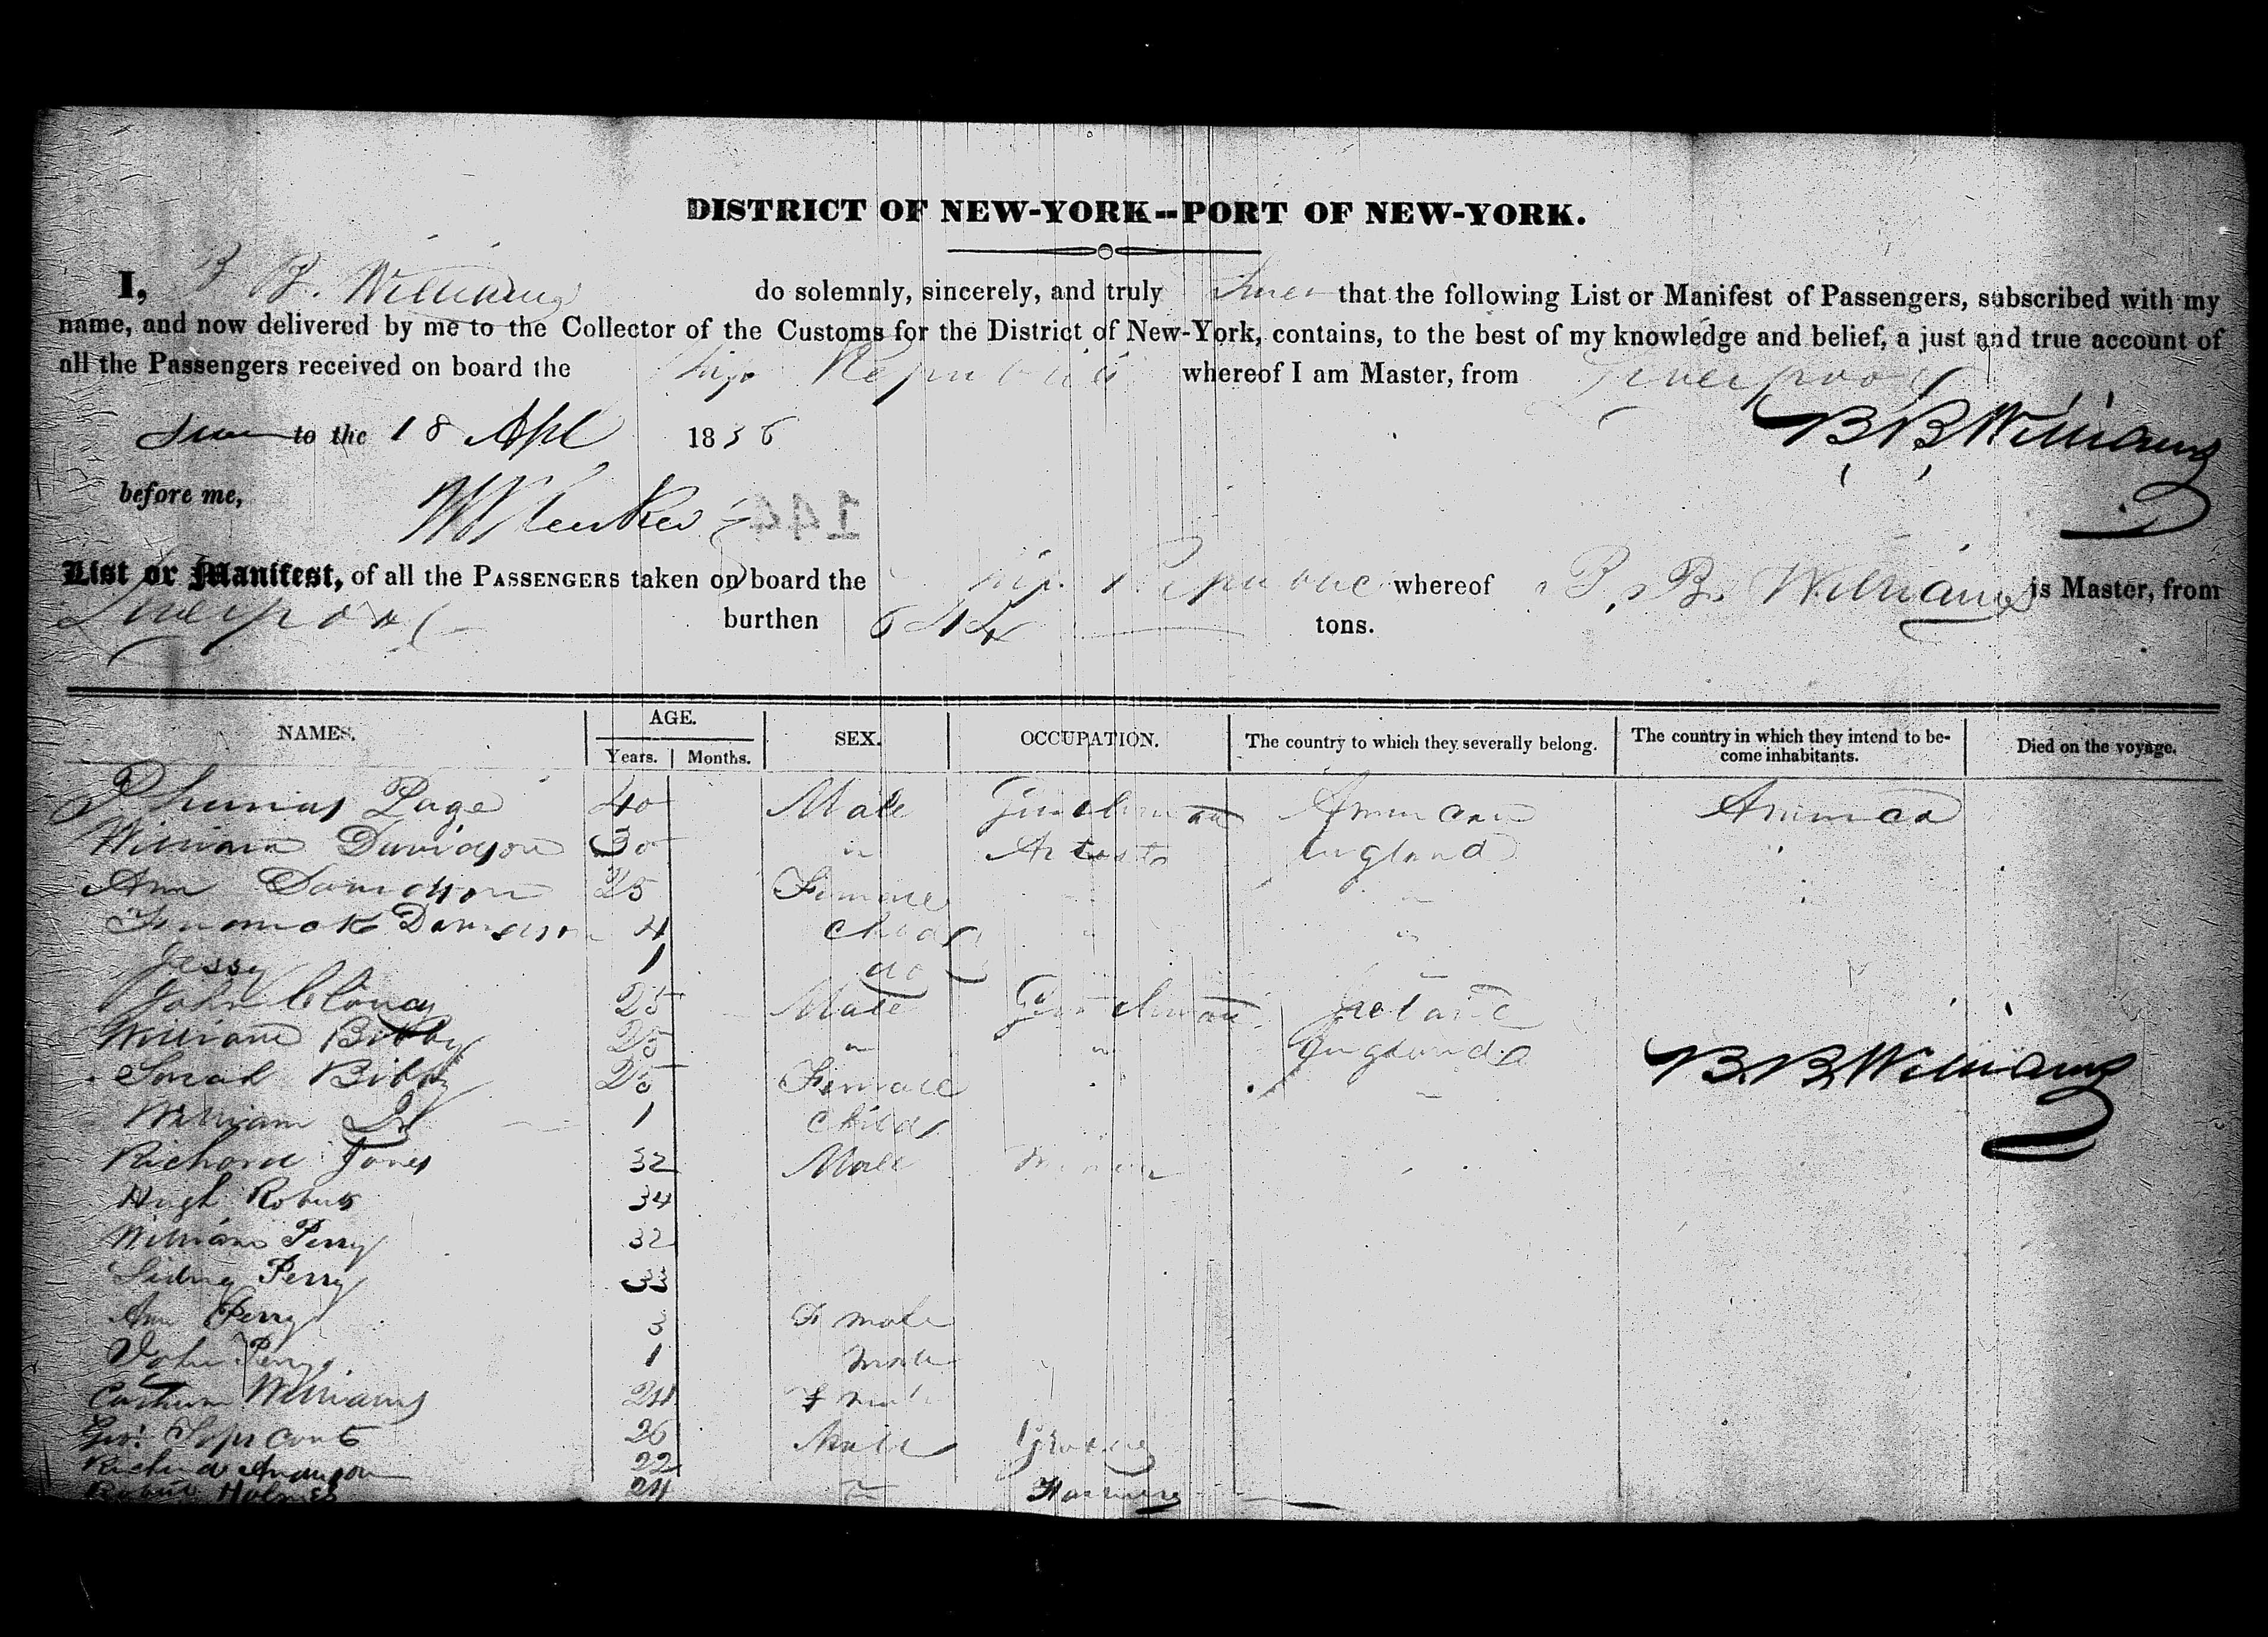 DISTRICT OF NEW-YORK--PORT OF NEW-YORK.
I, B B. Williams do solemnly, sincerely, and truly swear that the following List or Manifest of Passengers, subscribed with my
name, and now delivered by me to the Collector of the Customs for the District of New-York, contains, to the best of my knowledge and belief, a just and true account of
all the Passengers received on board the Ship Republic whereof I am Master, from Liverpool
to the 18 Apl 1836 B B Williams
before me,
144
List or Manifest, of all the PASSENGERS taken on board the Ship Republic whereof B. B. Williams is Master, from
Liverpool burthen 644 tons.
NAMES. AGE. SEX. OCCUPATION. The country to which they severally belong. The country in which they intend to be-
come inhabitants. Died on the voyage.
Years. Months.
Thomas Page 40 Male Gentleman American America
William Davidson 30 " England "
Ann Davidson 25 Female " "
Davidson 4 Child " "
Jessy 1 do
John Clancy 25 Male Gentleman Ireland
William Bibby 25 " " England B. B. Williams
Sarah Bibby 25 Female "
William Do 1 Child
Richard Jones 32 Male
Hugh Roberts 34
William Perry 32
Sidney Perry 33
Ann Perry 3 Female
John Perry 1 Male
Williams 24 Female
26 Male
Richard 22
Robert Holmes 24 "